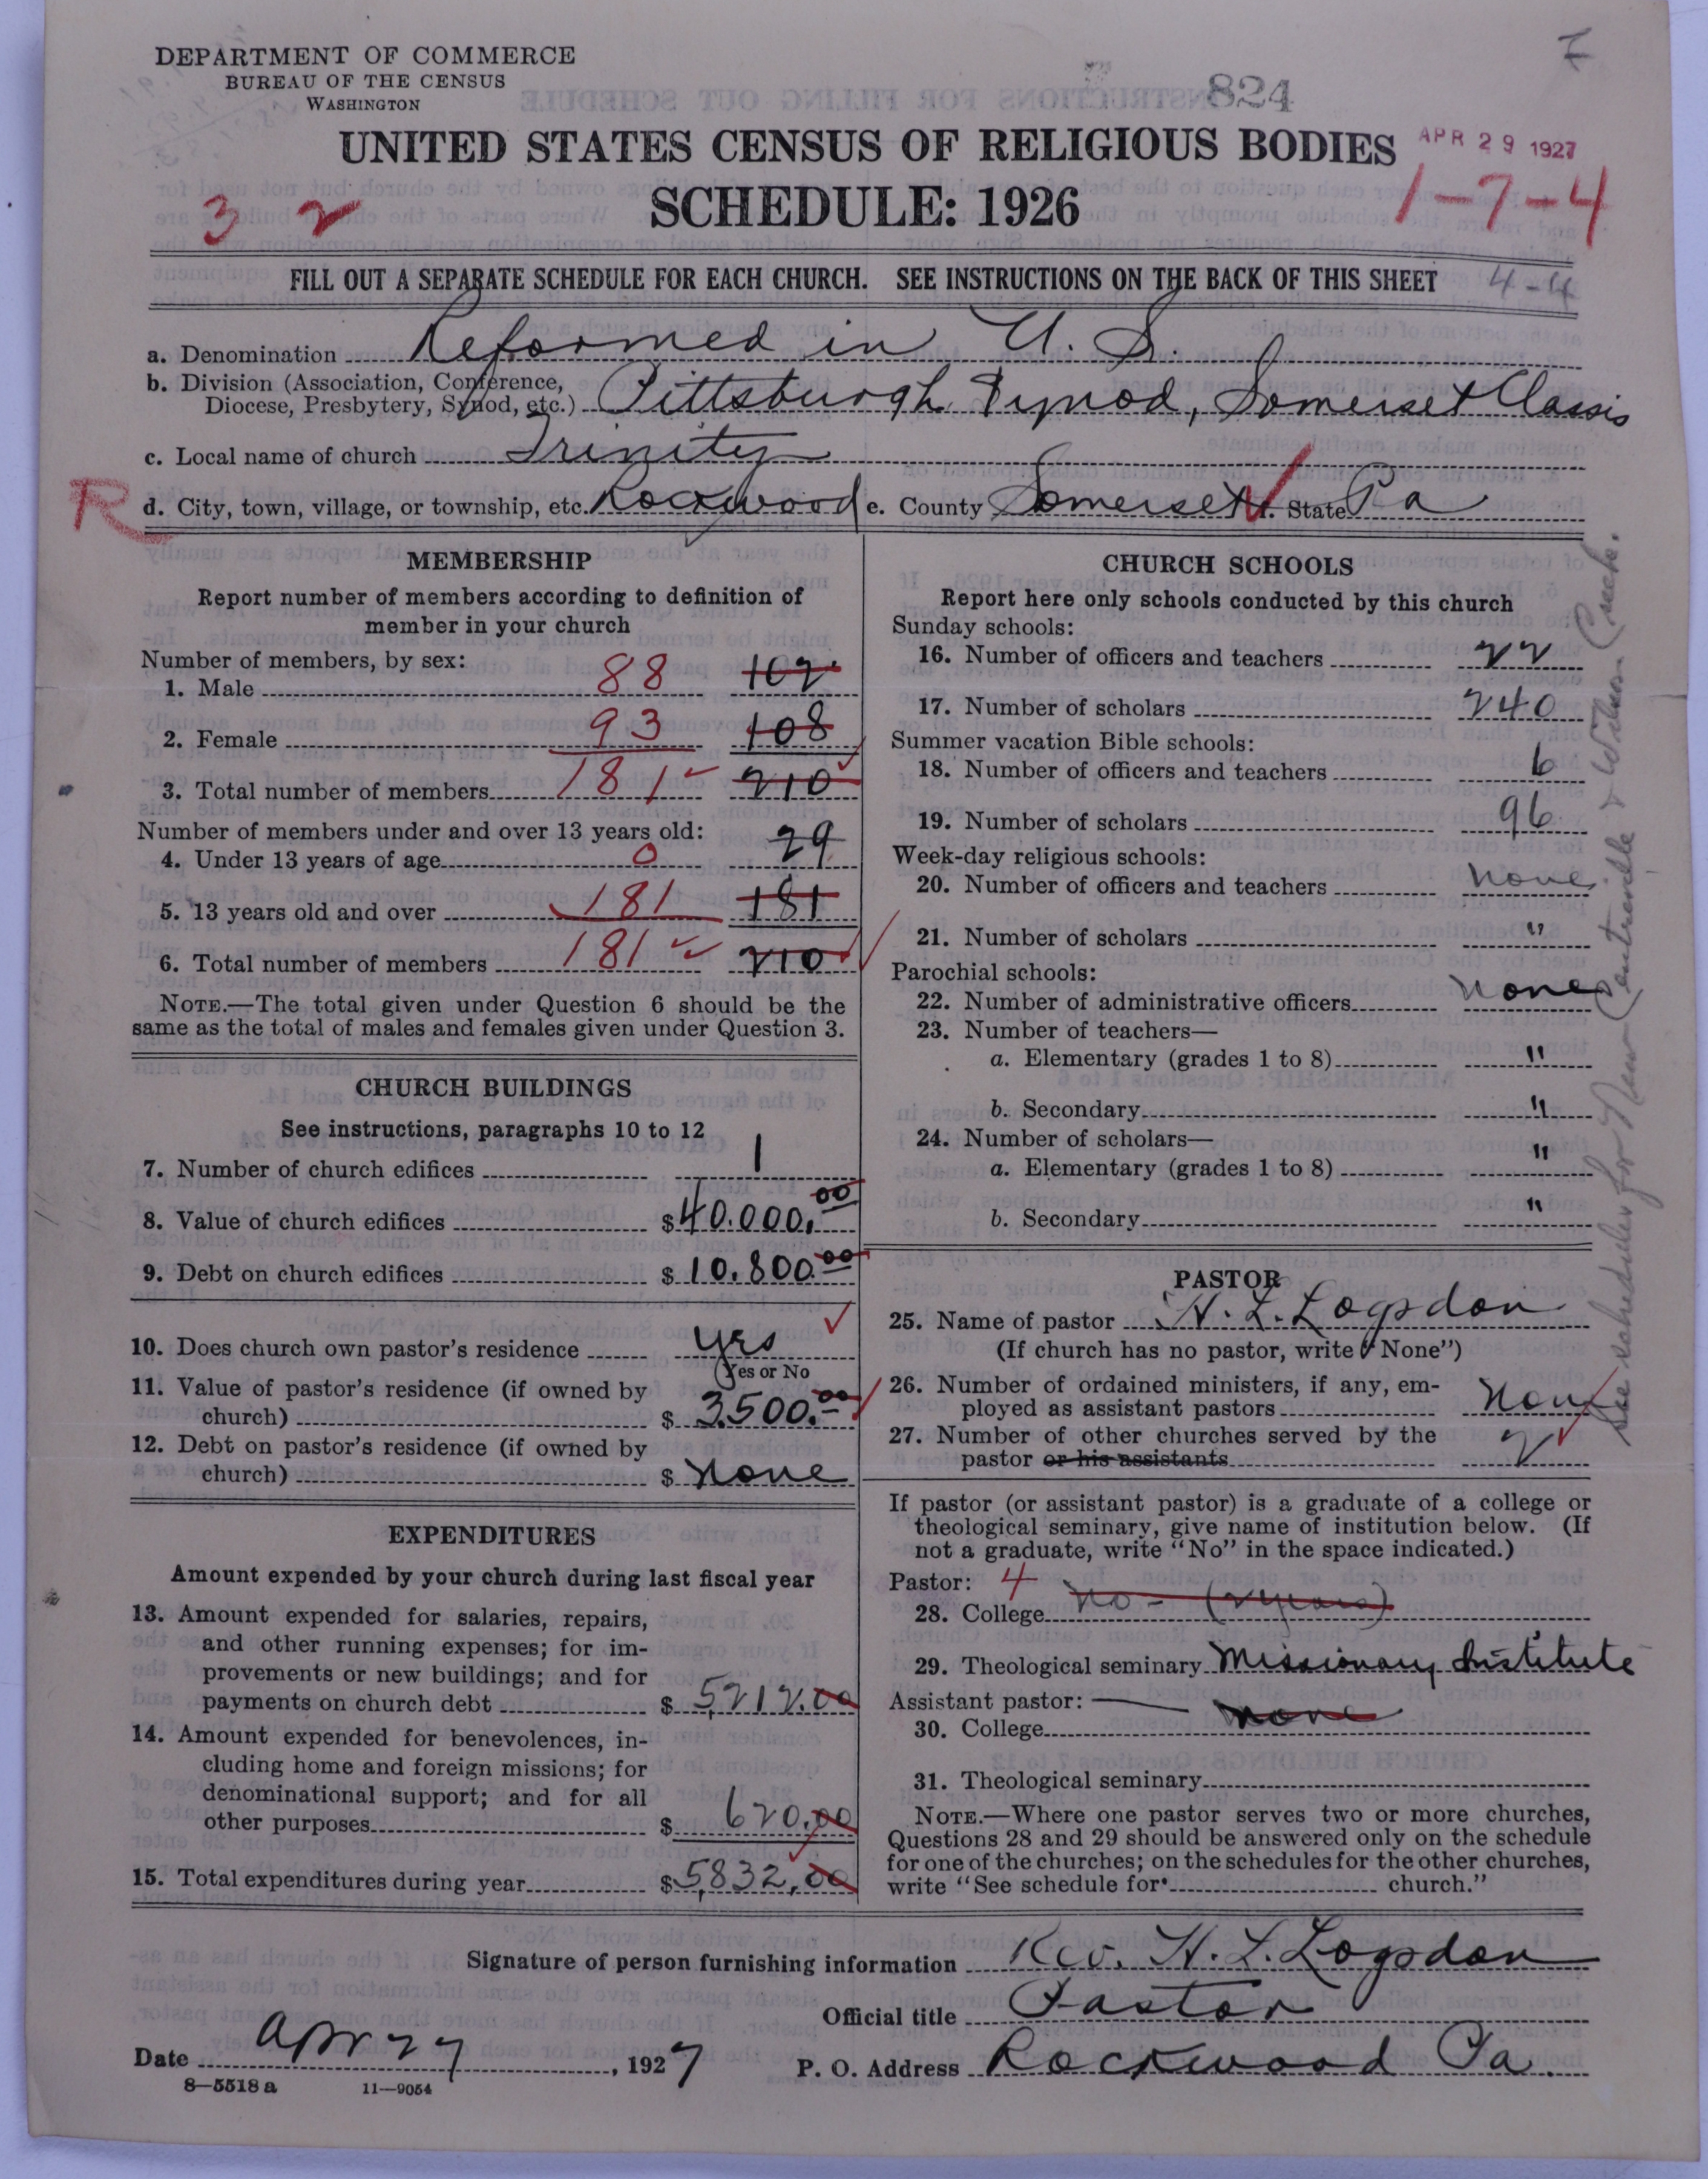 DEPARTMENT OF COMMERCE
BUREAU OF THE CENSUS
WASHINGTON
824
7
UNITED STATES CENSUS OF RELIGIOUS BODIES
APR 29 1927
SCHEDULE: 1926
3 2
1-7-4
FILL OUT A SEPARATE SCHEDULE FOR EACH CHURCH. SEE INSTRUCTIONS ON THE BACK OF THIS SHEET
4-4
a. Denomination Reformed in U. S.
b. Division (Association, Conference, Diocese, Presbytery, Synod, etc.) Pittsburgh Synod, Somerset Classis
c. Local name of church Trinity
R
d. City, town, village, or township, etc. Rockwood e. County Somerset State Pa
MEMBERSHIP
Report number of members according to definition of
member in your church
Number of members, by sex:
1. Male 88 102
2. Female 93 108
3. Total number of members 181 210
Number of members under and over 13 years old:
4. Under 13 years of age 0 29
5. 13 years old and over 181 181
6. Total number of members 181 210
NOTE.—The total given under Question 6 should be the
same as the total of males and females given under Question 3.
CHURCH BUILDINGS
See instructions, paragraphs 10 to 12
7. Number of church edifices 1
8. Value of church edifices $40.000.00
9. Debt on church edifices $10.800.00
10. Does church own pastor's residence yes
(Yes or No
11. Value of pastor's residence (if owned by
church) $ 3.500.00
12. Debt on pastor's residence (if owned by
church) $ none
EXPENDITURES
Amount expended by your church during last fiscal year
13. Amount expended for salaries, repairs,
and other running expenses; for im-
provements or new buildings; and for
payments on church debt $ 5,212.00
14. Amount expended for benevolences, in-
cluding home and foreign missions; for
denominational support; and for all
other purposes $ 620.00
15. Total expenditures during year $5,832.00
CHURCH SCHOOLS
Report here only schools conducted by this church
Sunday schools:
16. Number of officers and teachers 22
17. Number of scholars 240
Summer vacation Bible schools:
18. Number of officers and teachers 6
19. Number of scholars 96
Week-day religious schools:
20. Number of officers and teachers none
21. Number of scholars "
Parochial schools:
22. Number of administrative officers none
23. Number of teachers—
a. Elementary (grades 1 to 8) "
b. Secondary "
24. Number of scholars—
a. Elementary (grades 1 to 8) "
b. Secondary "
PASTOR
25. Name of pastor H. L. Logsdon
(If church has no pastor, write "None")
26. Number of ordained ministers, if any, em-
ployed as assistant pastors none
27. Number of other churches served by the
pastor or his assistants 2
If pastor (or assistant pastor) is a graduate of a college or
theological seminary, give name of institution below. (If
not a graduate, write "No" in the space indicated.)
Pastor: 4
28. College no - (2 years)
29. Theological seminary Missionary Institute
Assistant pastor: —
30. College none
31. Theological seminary
NOTE.—Where one pastor serves two or more churches,
Questions 28 and 29 should be answered only on the schedule
for one of the churches; on the schedules for the other churches,
write "See schedule for church."
See schedules for New Centreville & Wilson Creek.
Signature of person furnishing information Rev. H. L. Logsdon
Official title Pastor
Date Apr 27, 1927
P. O. Address Rockwood Pa.
8—5518 a 11—9054